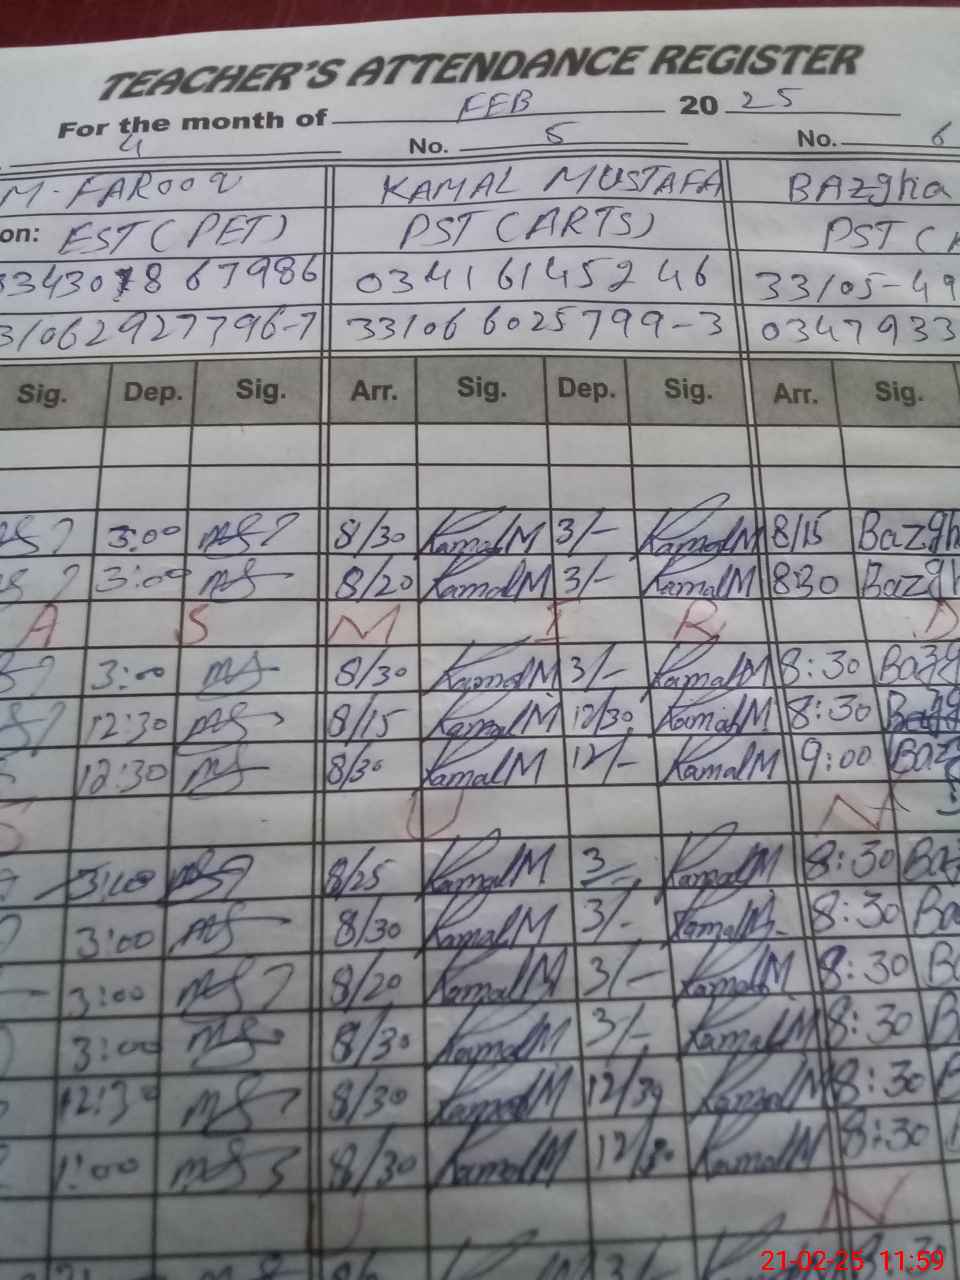 TEACHER'S ATTENDANCE REGISTER
For the month of FEB 20 25
4 No. 5 No. 6
M. FAROOQ KAMAL MUSTAFA BAzgha
on: EST (PET) PST (ARTS) PST (A
33105-49
0341 6145246
3310662927796-7 33106 6025799-3 0347933
Sig. Dep. Sig. Arr. Sig. Dep. Sig. Arr. Sig.
3:00 8/30 KamalM 3/- KamalM 8/15 Bazgh
3:00 8/20 KamalM 3/- KamalM 8:30 Bazgh
A S M I R D
3:00 8/30 KamalM 3/- KamalM 8:30 Bazg
12:30 8/15 KamalM 12/30 KamalM 8:30 Bazg
12:30 8/30 KamalM 12/- KamalM 9:00 Baz
S U N
3:00 8/25 KamalM 3/- KamalM 8:30 Baz
3:00 8/30 KamalM 3/- KamalM 8:30 Ba
3:00 8/20 KamalM 3/- KamalM 8:30 B
3:00 8/30 KamalM 3/- KamalM 8:30 B
12:30 8/30 KamalM 12/30 KamalM 8:30 B
1:00 8/30 KamalM 12/30 KamalM 8:30
U N
21-02-25 11:59